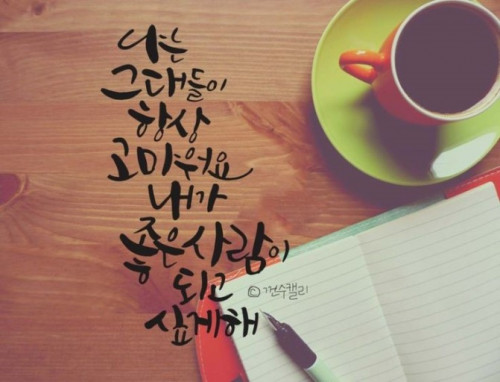 나는
그대들이
항상
고마워요
내가
좋은 사람이
되고
싶게 해
© 껀수캘리